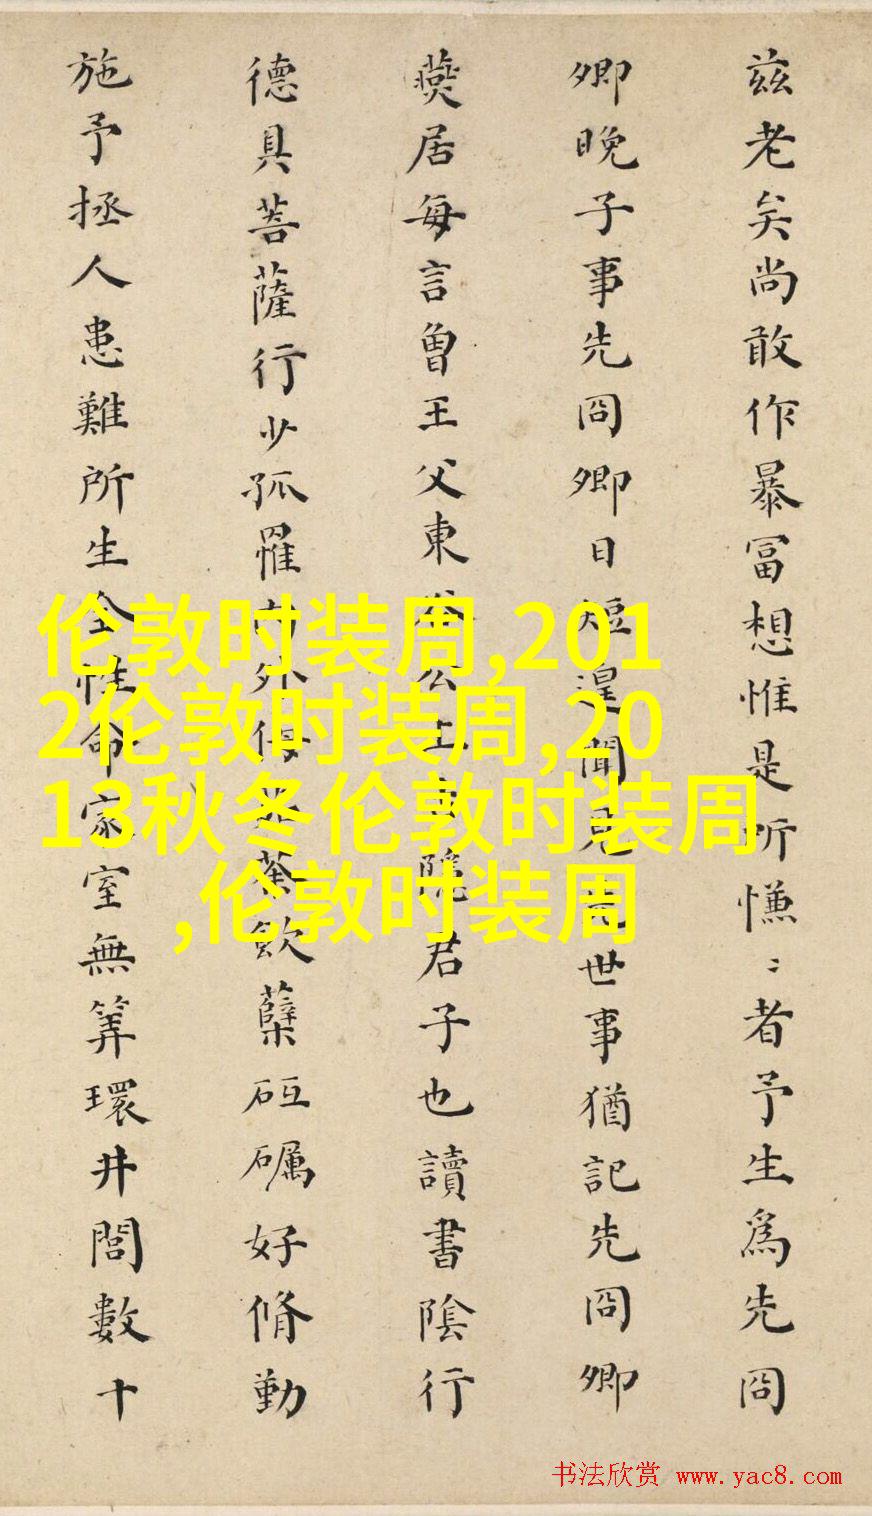 茲老矣尚敢作暴冨想惟是所慊〻者予生爲先冏
卿晚子事先冏卿日短遑聞見先世事猶記先冏卿
燕居每言曾王父東谷公隱君子也讀書陰行
德具菩薩行少孤罹外侮荼飲蘗砥礪好脩勤
施予拯人患難所生全惟命家室無筭環井閭數十
伦敦时装周,201
2伦敦时装周,20
13秋冬伦敦时装周
,伦敦时装周
书法欣赏 www.yac8.com